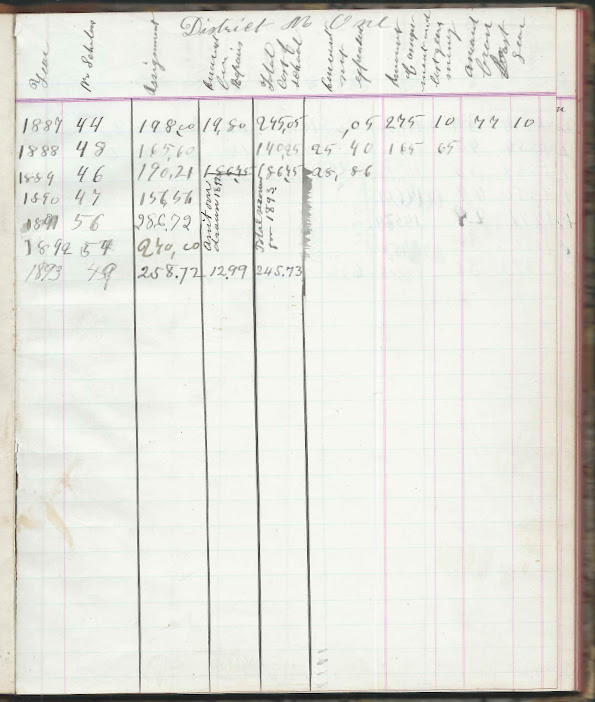 District No One
Year
No Scholars
Assignment
Amount for Repairs
Total Cost of School
Amount not expended
Amount of assignment last year
Amount Last Year
1887 44 198,00 19,80 245,05 ,05 245 10 44 10
1888 48 165,60 140,25 25 40 165 65
1889 46 190,21 186,45 28, 86
1890 47 156,56
1891 56 286.72
1892 54 270,00
1893 49 258.72 12.99 245.73
Amt over drawn 1892
Total recd for 1893